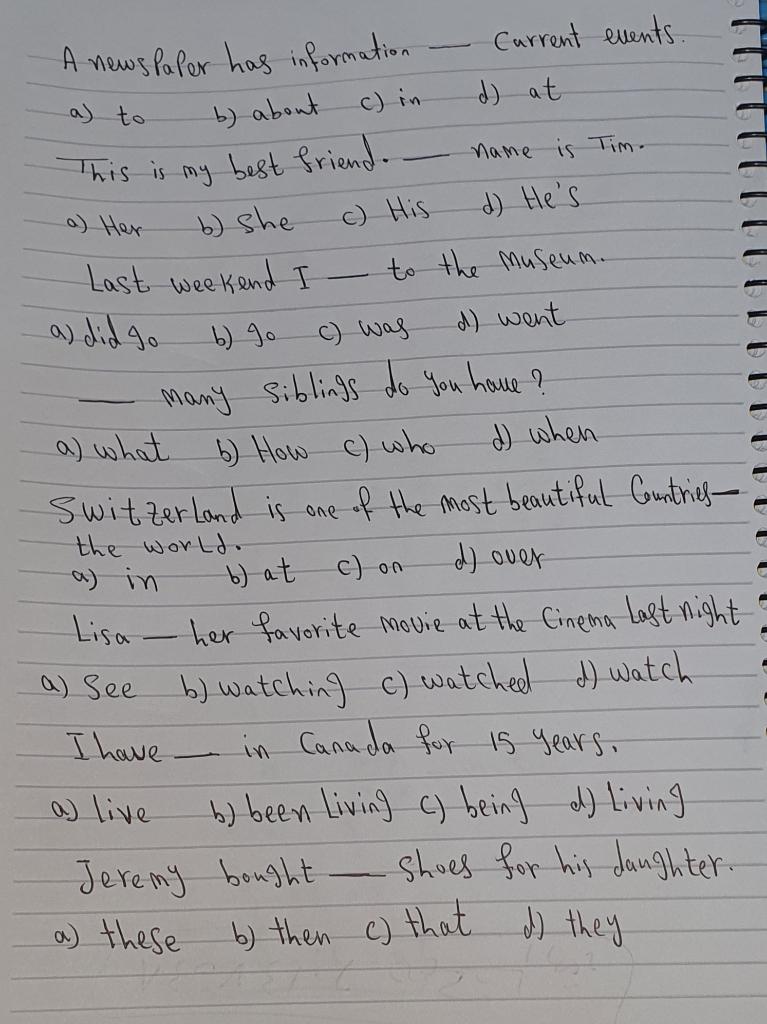 A newspaper has information — Current events.
a) to b) about c) in d) at
This is my best friend. — name is Tim.
a) Her b) She c) His d) He's
Last weekend I — to the Museum.
a) did go b) go c) was d) went
— many siblings do you have?
a) what b) How c) who d) when
Switzerland is one of the most beautiful Countries —
the world.
a) in b) at c) on d) over
Lisa — her favorite movie at the Cinema Last night
a) See b) watching c) watched d) watch
I have — in Canada for 15 years.
a) live b) been Living c) being d) Living
Jeremy bought — shoes for his daughter.
a) these b) then c) that d) they